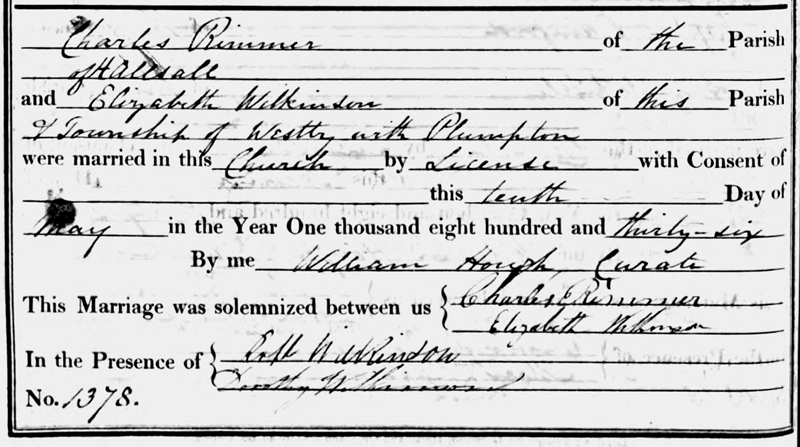 Charles Rimmer of the Parish
of Hallsall
and Elizabeth Wilkinson of this Parish
& Township of Westby with Plumpton
were married in this Church by License with Consent of
this tenth Day of
May in the Year One thousand eight hundred and thirty-six
By me William Hough, Curate
This Marriage was solemnized between us { Charles Rimmer
Elizabeth Wilkinson
In the Presence of { Robt Wilkinson
Dorothy Wilkinson
No. 1378.